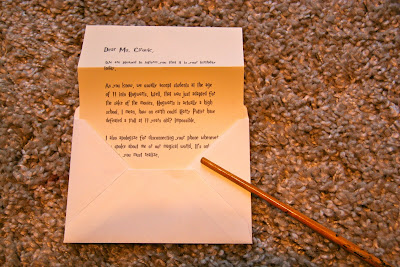 Dear Ms. Cranke,
We are pleased to inform you that it is your birthday
today.
As you know, we usually accept students at the age
of 11 into Hogwarts. Well, that was just adapted for
the sake of the movies. Hogwarts is actually a high
school. I mean, how on earth could Harry Potter have
defeated a troll at 11 years old? Impossible.
I also apologize for disconnecting your phone whenever
you spoke about me or our magical world. It's not
you must realize,